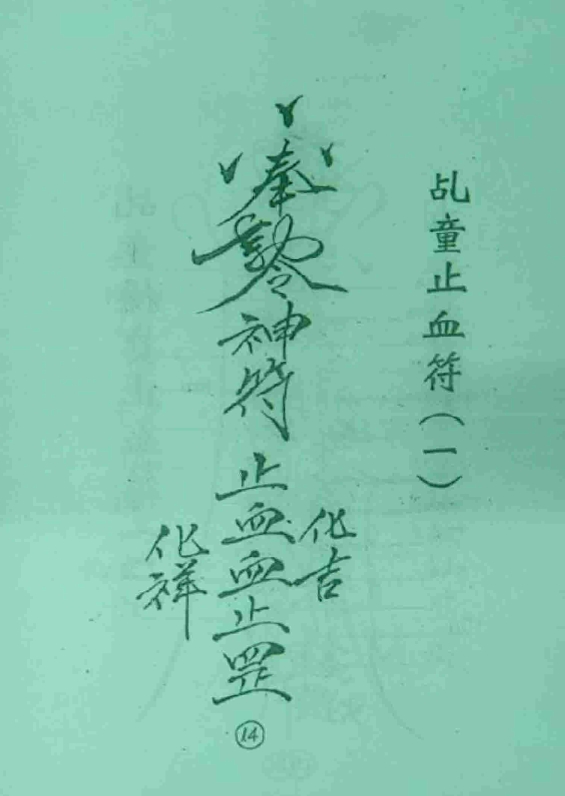 乩童止血符（一）
奉勅令神符止血血止罡
化吉
化祥
14